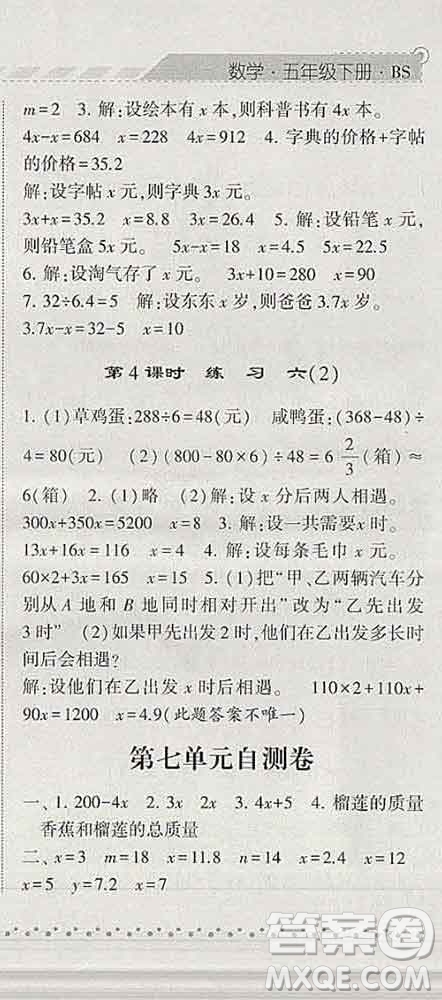 数学·五年级下册·BS
m=2 3. 解:设绘本有 x 本,则科普书有 4x 本。
4x-x=684 x=228 4x=912 4. 字典的价格+字帖
的价格=35.2
解:设字帖 x 元,则字典 3x 元。
3x+x=35.2 x=8.8 3x=26.4 5. 解:设铅笔 x 元,
则铅笔盒 5x 元。 5x-x=18 x=4.5 5x=22.5
6. 解:设淘气存了 x 元。 3x+10=280 x=90
7. 32÷6.4=5 解:设东东 x 岁,则爸爸 3.7x 岁。
3.7x-x=32-5 x=10
第 4 课时 练 习 六(2)
1. (1)草鸡蛋:288÷6=48(元) 咸鸭蛋:(368-48)÷
4=80(元) (2)(800-80×6)÷48=6 2/3(箱)≈
6(箱) 2. (1)略 (2)解:设 x 分后两人相遇。
300x+350x=5200 x=8 3. 解:设一共需要 x 时。
13x+16x=116 x=4 4. 解:设每条毛巾 x 元。
60×2+3x=165 x=15 5. (1)把“甲、乙两辆汽车分
别从 A 地和 B 地同时相对开出”改为“乙先出发
3 时” (2)如果甲先出发 2 时,他们在乙出发多长时
间后会相遇?
解:设他们在乙出发 x 时后相遇。 110×2+110x+
90x=1200 x=4.9(此题答案不唯一)
第七单元自测卷
一、1. 200-4x 2. x+5=12 3. 4x 4. 榴莲的质量
香蕉和榴莲的总质量
二、x=3 m=18 x=11.8 n=14 x=2.5
x=5 y=7.2 x=7
答案圈
MXQE.COM